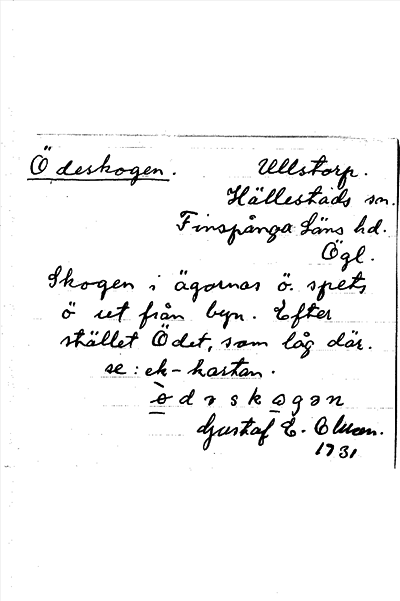 Ödeskogen. Ullstorp.
Hällestads sn.
Finspånga Läns hd.
Ögl.
Skogen i ägornas ö. spets
ö ut från byn. Efter
stället Ödet, som låg där.
se: ek-kartan.
ödəskogən
Gustaf E.
1931